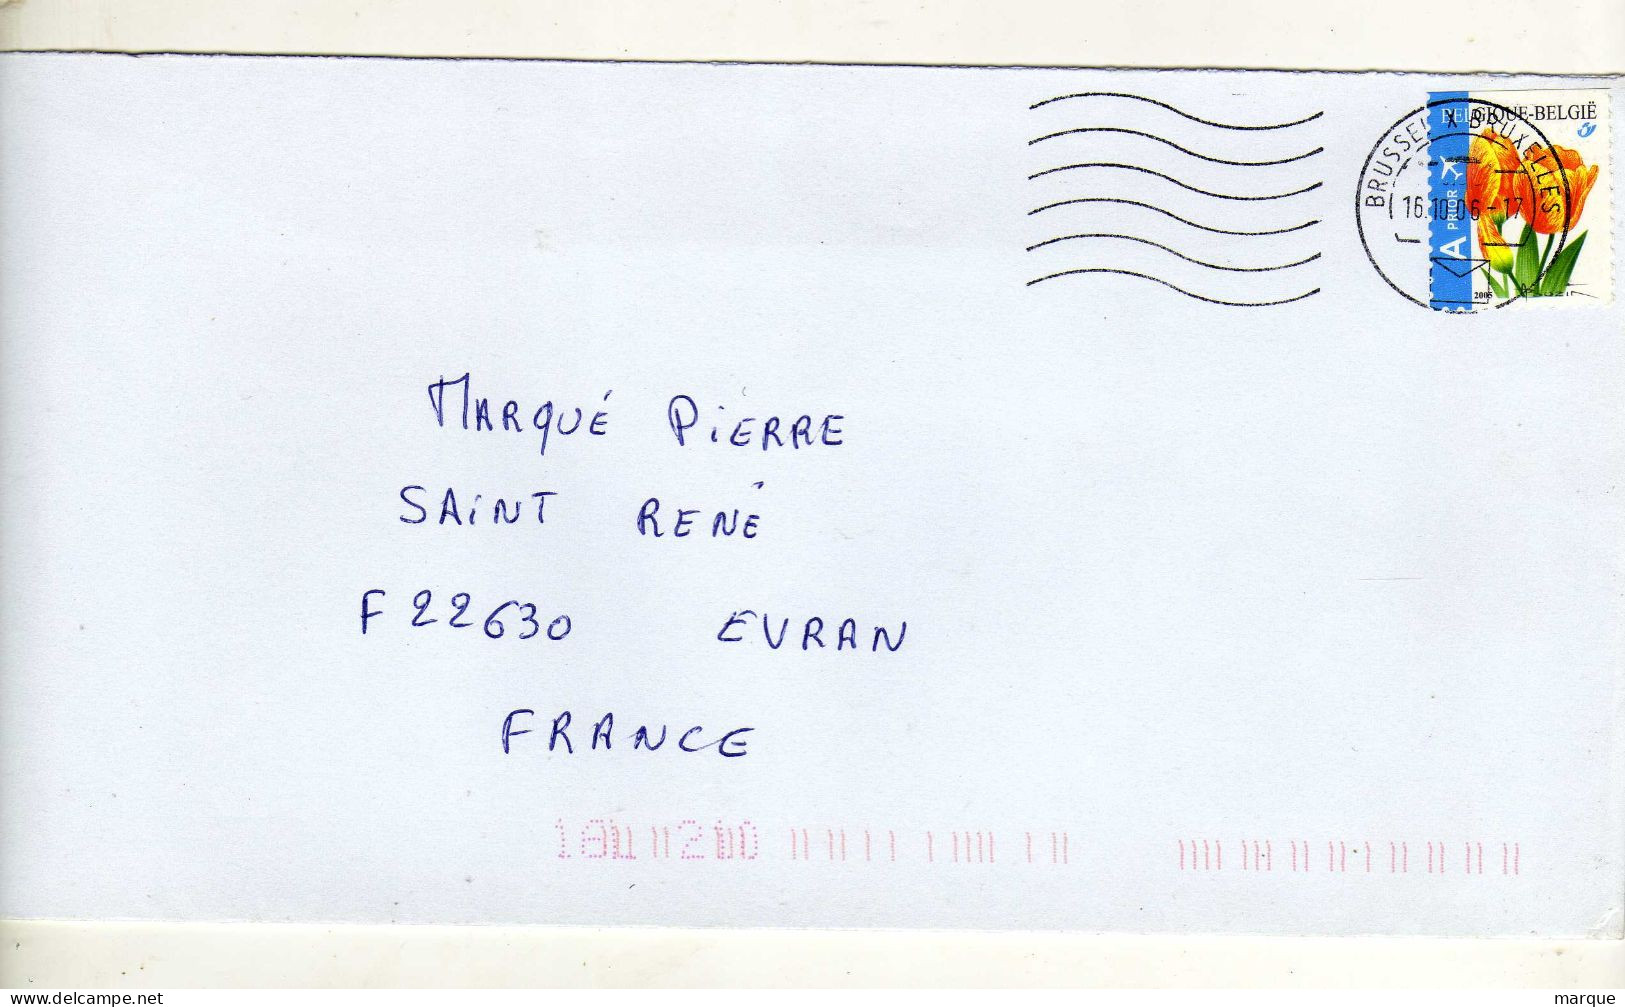 BELGIQUE-BELGIË
BRUSSEL X BRUXELLES
16.10.06-17
A PRIOR
2005
MARQUÉ PIERRE
SAINT RENÉ
F 22630 EVRAN
FRANCE
www.delcampe.net
marque